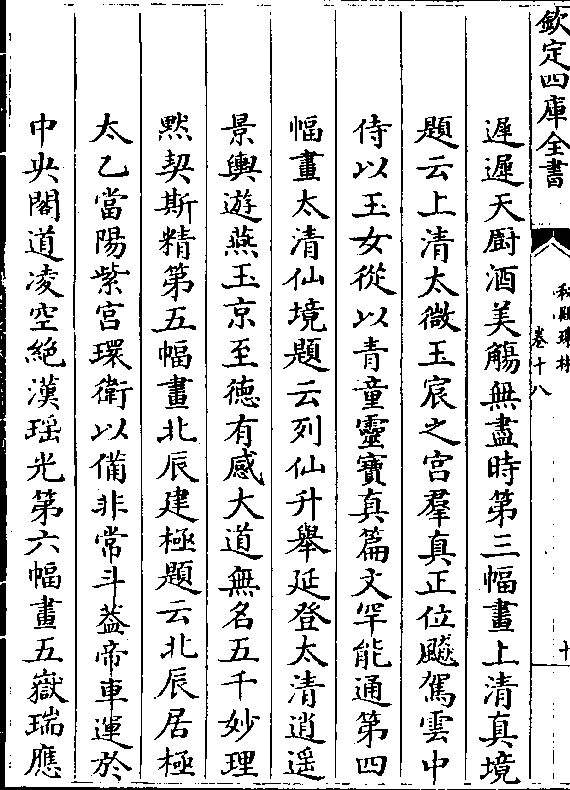 欽定四庫全書
秘殿珠林
卷十八
十
遲遲天厨酒美觴無盡時第三幅畫上清真境
題云上清太微玉宸之宫羣真正位飈駕雲中
侍以玉女從以青童靈寶真篇文罕能通第四
幅畫太清仙境題云列仙升舉延登太清逍遥
景輿遊燕玉京至德有感大道無名五千妙理
黙契斯精第五幅畫北辰建極題云北辰居極
太乙當陽紫宫環衛以備非常斗葢帝車運於
中央閣道凌空絶漢瑶光第六幅畫五嶽瑞應